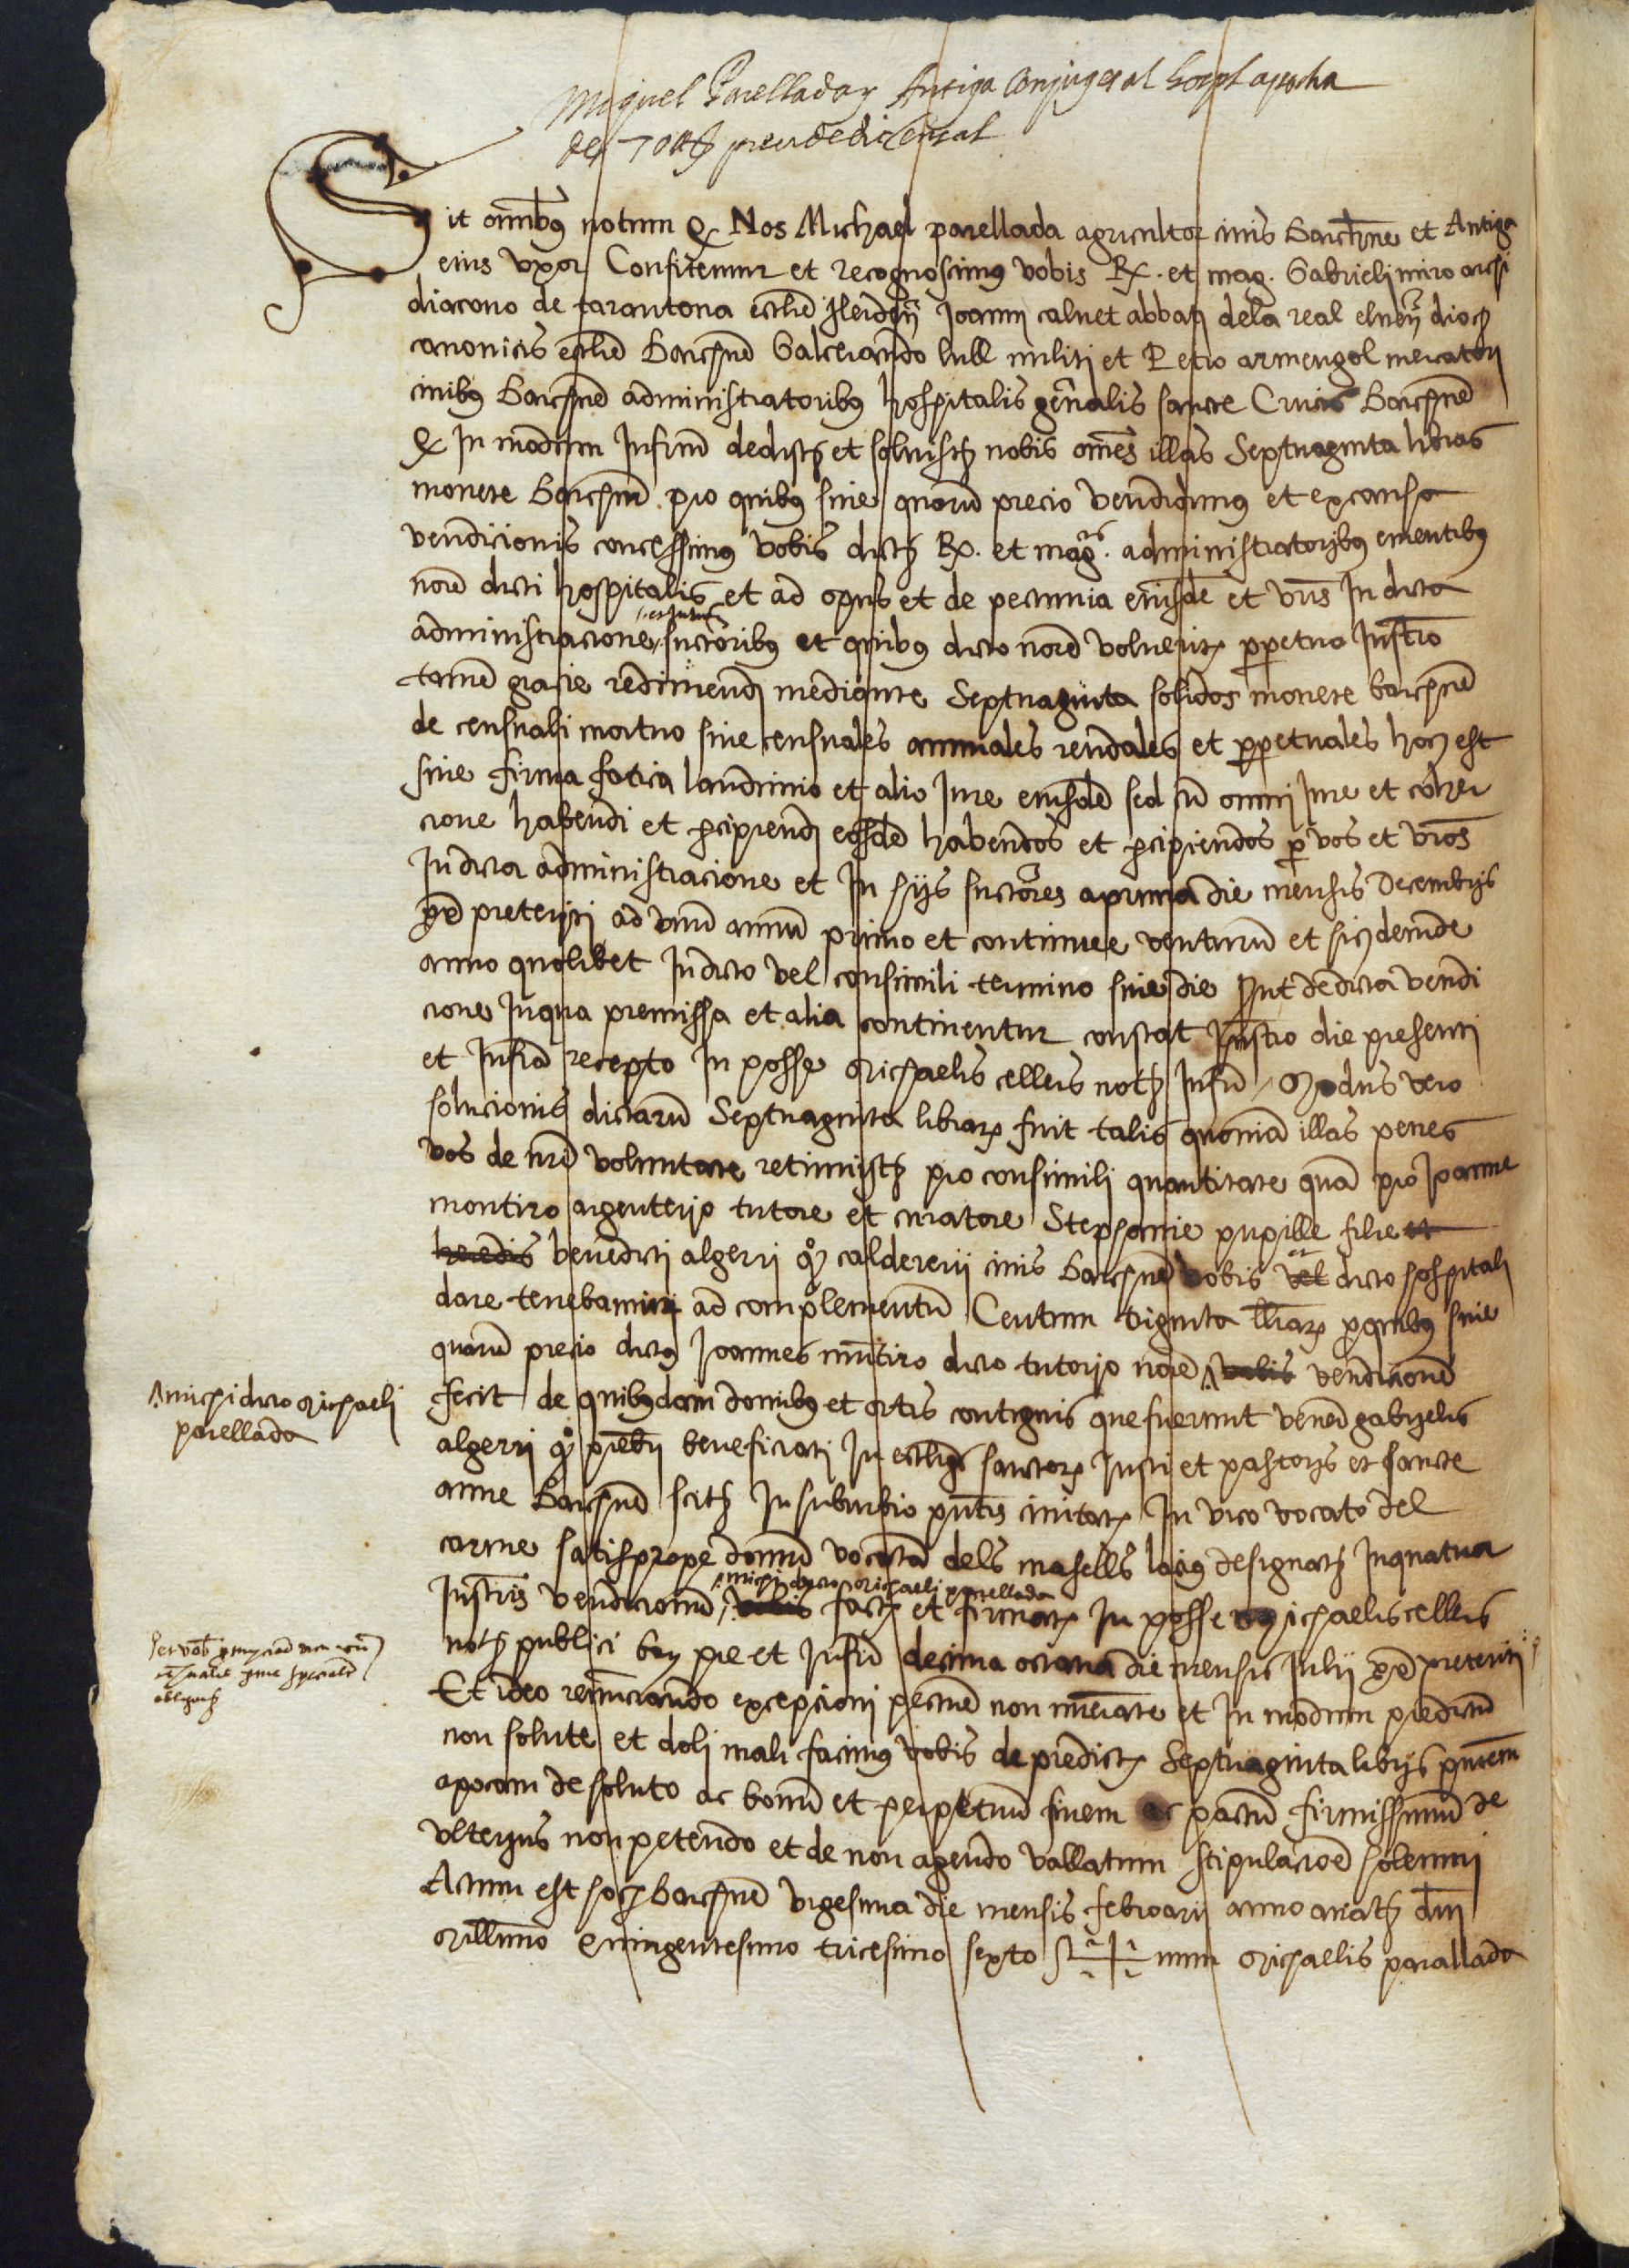 Miquel Parellada y Antiga conjuges al hospl apocha
de 70 ll preu de dit censal
Sit omnibus notum q Nos Michael parellada agricultor civis Barchne et Antiga
eius uxor Confitemur et recognoscimus vobis Rx. et mag. Gabrieli miro archi
diacono de tarantona ecclie Ilerden Joanni calvet abbati dela real elnen dioc
canonicis ecclie Barchne Galcerando lull militi et Petro armengol mercatori
civibus Barchne administratoribus hospitalis generalis sancte Crucis Barchne
q In modum Infrm dedistis et solvistis nobis omnes illas Septuaginta libras
monete Barchne pro quibus sive quorum precio vendidimus et ex causa
vendicionis concessimus vobis dictis Rx. et mag.cis administratoribus ementibus
noie dicti hospitalis et ad opus et de pecunia eiusde et vris In dicta
administracione suctoribus et quibus dicto noie volueritis perpetuo Instro
tame gracie redimendi mediante Septuaginta solidos monete barchne
de censuali mortuo sive censuales annuales rendales et perpetuales hoc est
sine firma fatica laudimio et alio Jure eiusde sed cu omni Jure et coher
cione habendi et percipiendi eosde habendos et percipiendos per vos et vros
In dicta administracione et In hijs suctores a prima die mensis Decembris
pxe preteriti ad unu annu primo et continue venturu et sic deinde
anno quolibet In dicto vel consimili termino sive die prout de dicta vendi
cione In qua premissa et alia continentur constat Instro die presenti
et Infro recepto In posse Michaelis cellers noth Infri Modus vero
solucionis dictaru Septuaginta librar fuit talis quonia illas penes
vos de nra voluntate retinuistis pro consimili quantitate qua pro Joanne
montiro argenterio tutore et curatore Stephanie pupille filie et
heredis benedicti algerri qo caldererii civis Barchne vobis vel et dicto hospitali
dare tenebamini ad complementu Centum viginta lliar pro quibus sive
quoru precio dictus Joannes muntiro dicto tutorio noie vobis vendicione
mihi dicto Michaeli
parellada
fecit de quibusdam domibus et ortis contiguis que fuerunt venera gabrielis
algerri qo prebri beneficiati In ecclia sanctor Justi et pastoris et sancte
anne Barchne scitis In suburbio pntis civitatis In vico vocato del
carme satis prope domu vocata dels masells lacius designatis In quatuor
mihi dicto Michaeli parellada
Instris vendicionu vobis factis et firmatis In posse Michaelis cellers
noth publici bar pre et Infri decima octava die mensis Julii pxe preteriti
Et ideo renunciando excepcioni pecunie non numerate et In modum predictu
non solute et doli mali facimus vobis de predictis Septuaginta libris presentem
apocam de soluto ac bonu et perpetuu finem ac pactu firmissimu de
ulterius non petendo et de non agendo vallatum stipulacioe solemni
Actum est hoc Barchne vigesima die mensis febroarii anno a natis dni
Millimo quingentesimo tricesimo sexto S+num Michaelis parallada